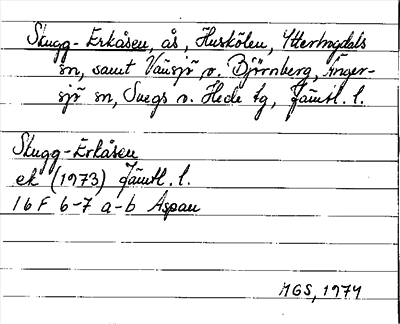 Skugg-Erkåsen, ås, Huskölen, Ytterhogdals
sn, samt Vänsjö o. Björnberg, Änger-
sjö sn, Svegs o. Hede tg, Jämtl. l.
Skugg-Erkåsen
ek (1973) Jämtl. l.
16F 6-7 a-b Aspan
MGS, 1974